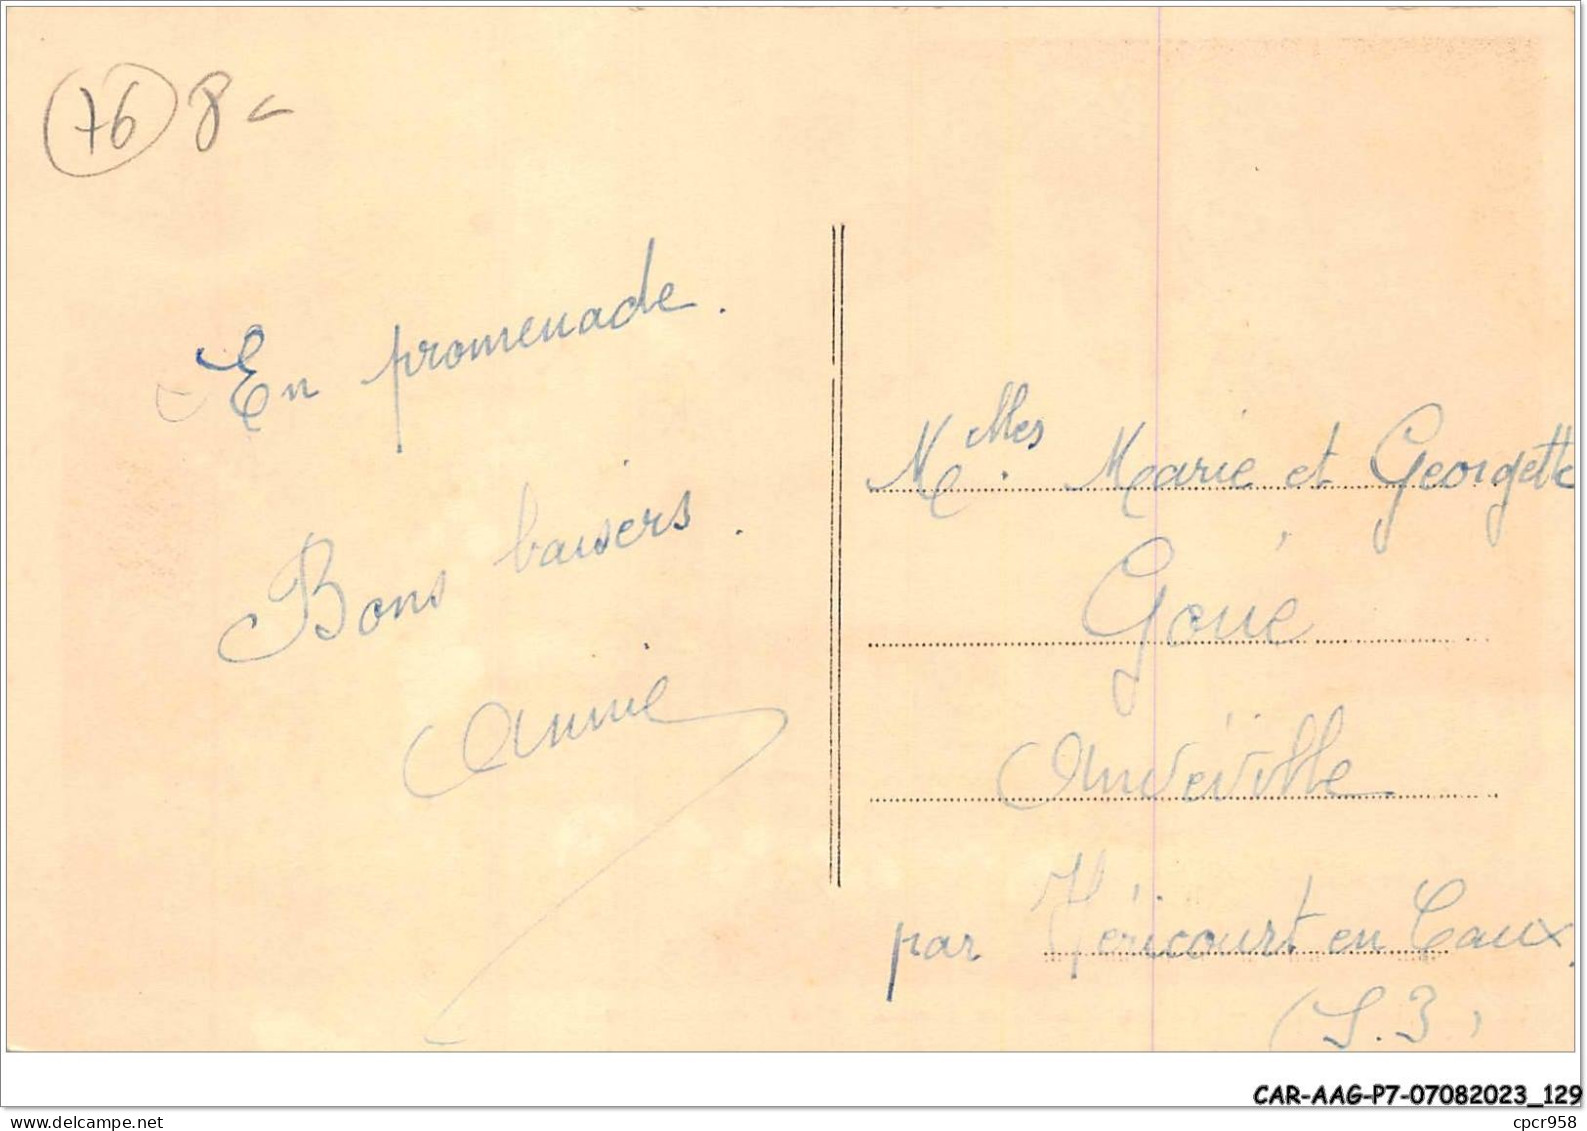 76 8
En promenade.
Bons baisers.
Annie
Melles. Marie et Georgette
Goué
Anvéville
par Héricourt en Caux.
(S. 3)
CAR-AAG-P7-07082023_129
delcampe.net
cpcr958